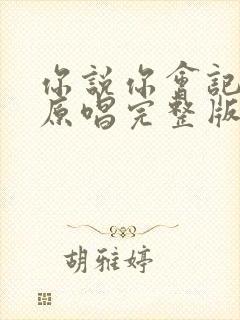 你說你會記
原唱完整版
胡雅婷